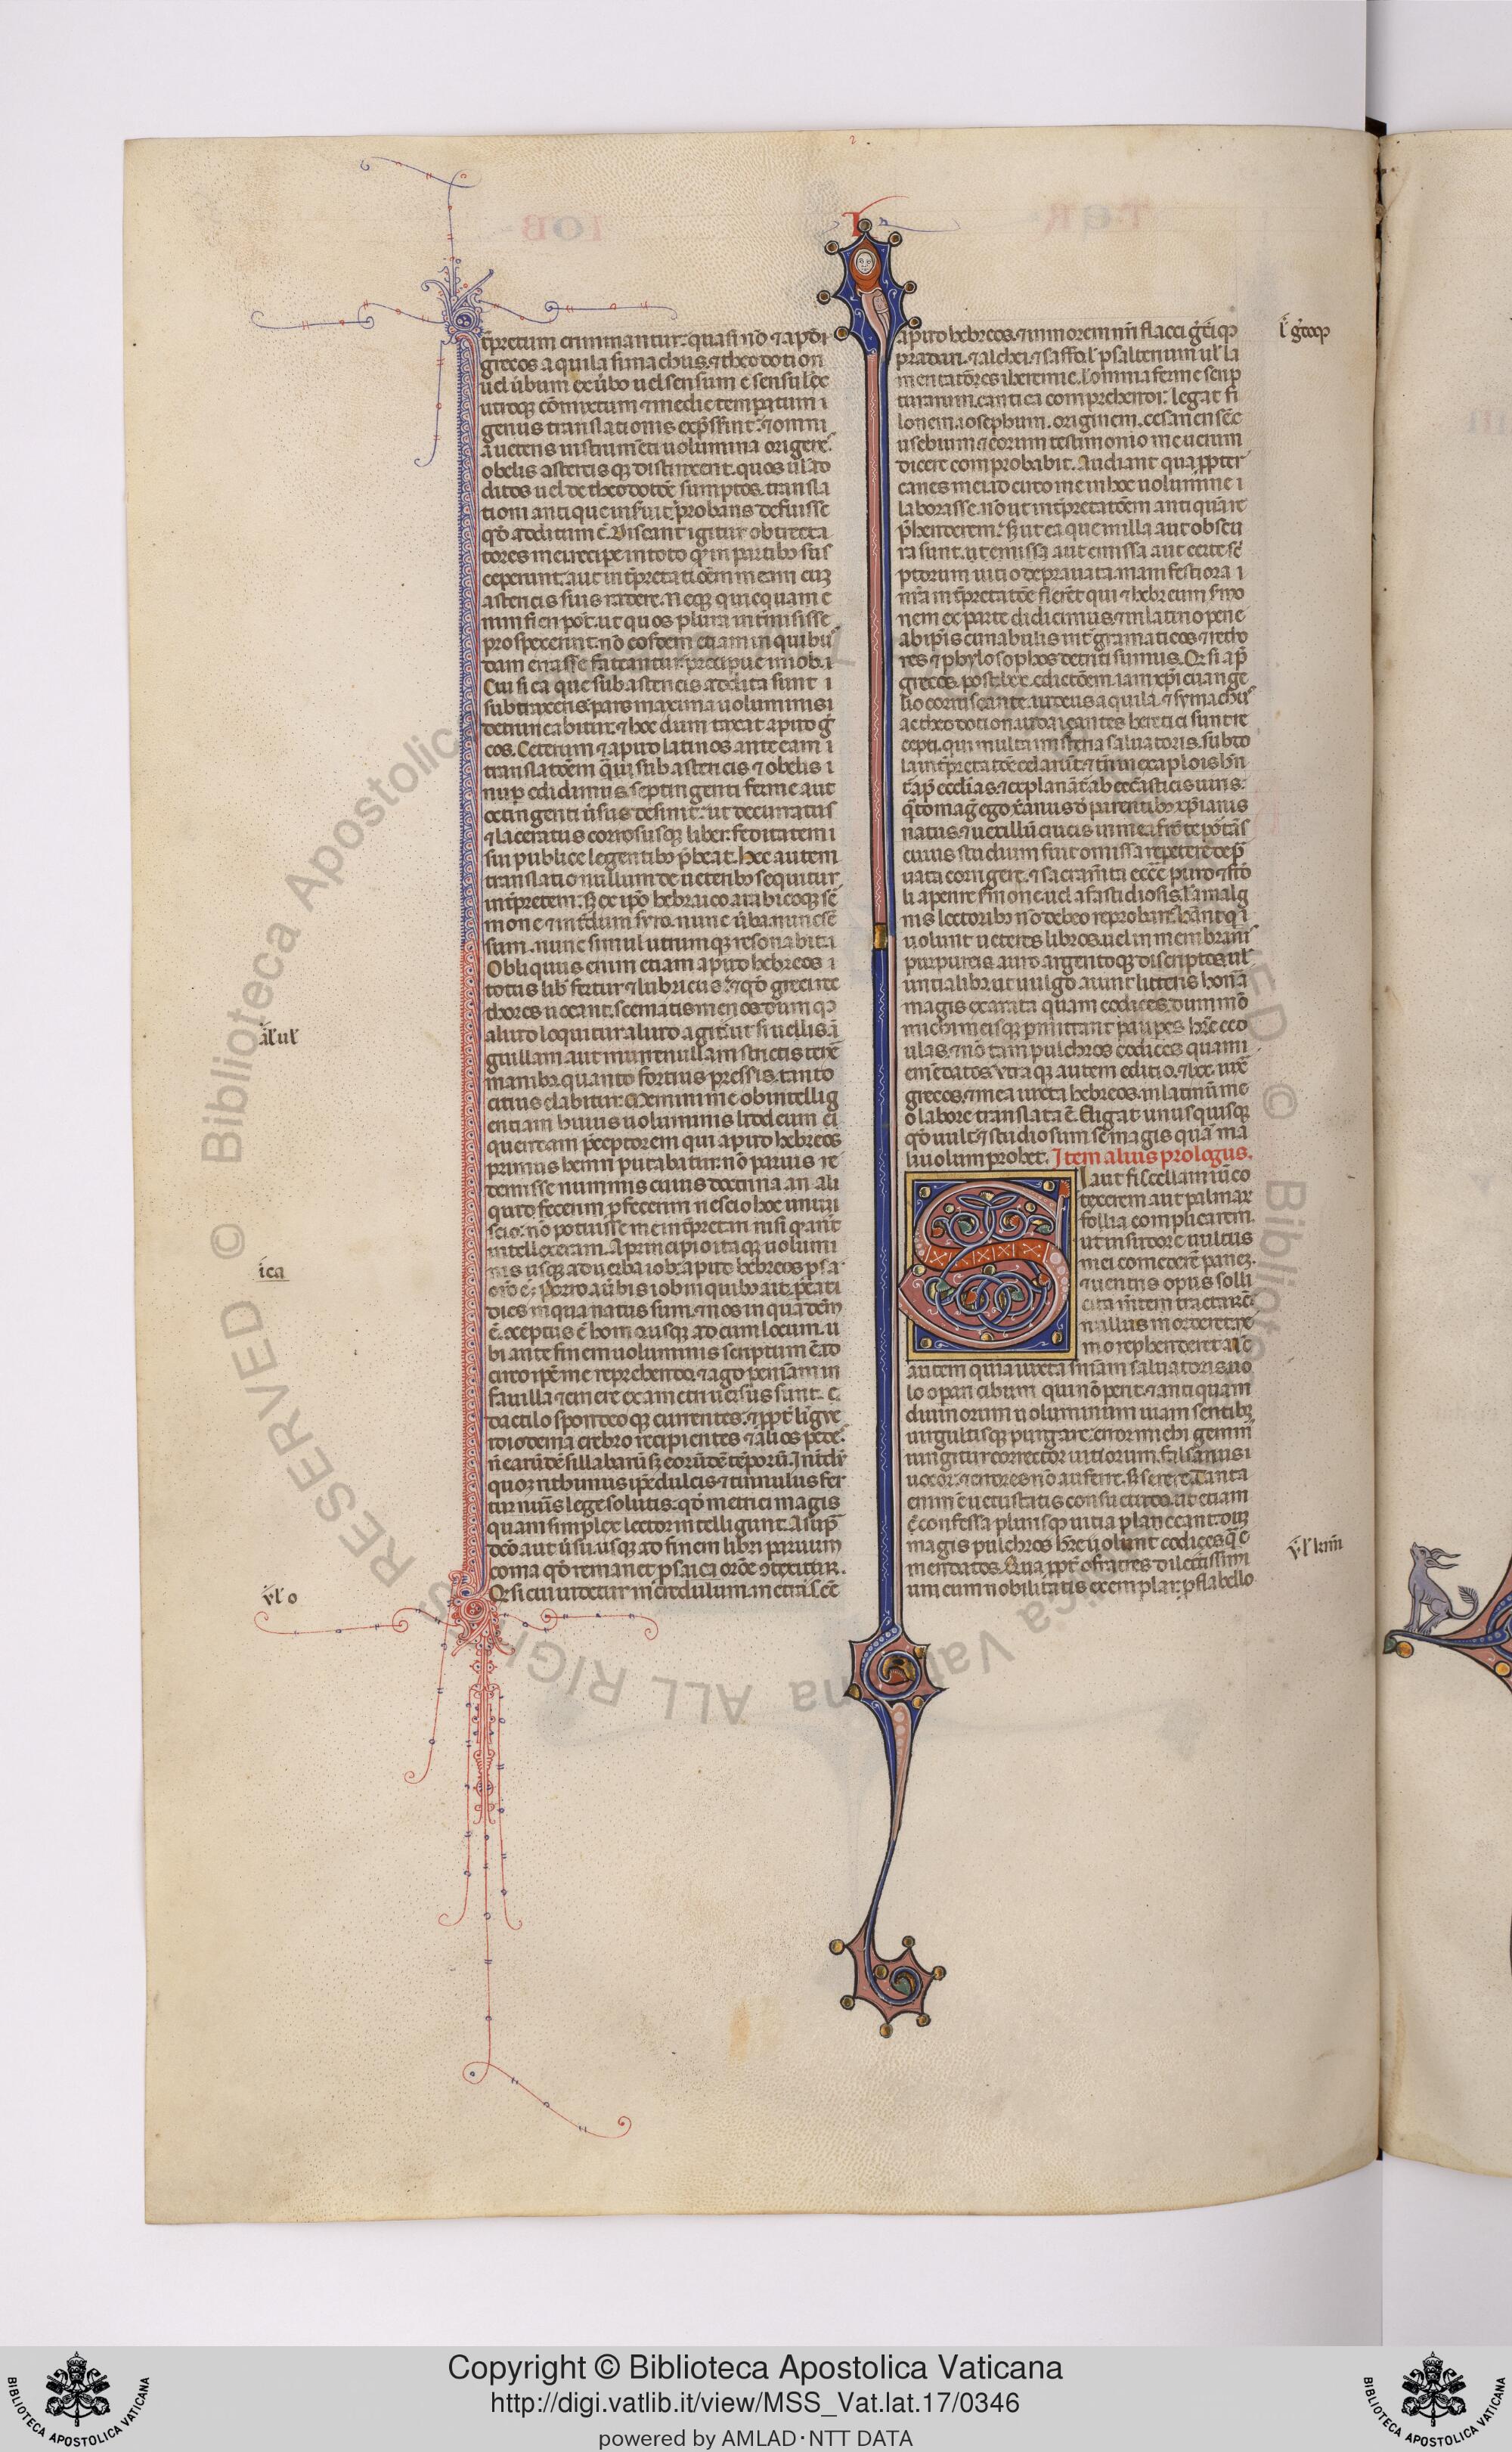 t̃pretum criminantur. quasi nõ ⁊ apð
grecos aquila simachus. ⁊ theodotion
uel ũbum ex ũbo uel sensum e sensu. l̃ ex
utroq; cõmixtum ⁊ medie temperatum
genus translationis exp̃sserint. ⁊ omnia
ueteris instrum̃ti uolumina origenes
obelis asteriscisq; distinxerit. quos uł ad
ditos uel de theodotiõe sumptos. transla
tioni antique inseruit. probans defuisse
qð additum ẽ. Discant igitur obtrecta
tores mei recipe in toto qð in partibꝰ sus
ceperunt. aut int̃pretatiõem meam cum
astericis suis radere. Neq; enim
fieri põt. ut quos plura intermisisse
prospexerint. nõ eosdem etiam in quibus
dam errasse fateantur. precipue in iob.
Cui si ea que sub astericis addita sunt
subtraxeris. pars maxima uoluminis
detruncabitur. ⁊ hoc dum taxat apud g̃
cos. Ceterum ⁊ apud latinos ante eam
translatõem q̃m sub astericis ⁊ obelis
nup edidimus. septingenti ferme aut
octingenti ũsus desunt. ut decurtatus
⁊ laceratus corrosusq; liber. feditatem
sui publice legentibꝰ p̃beat. Hec autem
translatio nullum de ueteribꝰ sequitur
int̃pretem. sʒ ex ipõ hebraico arabicoq; s̃
mone ⁊ int̃dum syro. nunc ũba. nunc sẽ
sum. nunc simul utrumq; resonabit.
Obliquus enim etiam apud hebreos
totus lib̃ fertur ⁊ lubricus. ⁊ qð grece re
thores uocant. scematismenos. dum qꝫ
aliud loquitur aliud agit. ut si uellis ã
guillam aut murenullam strictis tenẽ
manibꝫ. quanto fortius pressis. tanto
citius elabitur. Memini me ob intellig
entiam huius uoluminis liddeum
quendam p̃ceptorem qui apud hebreos
primus haberi putabatur. nõ paruis re
demisse nummis. cuius doctrina. an ali
quid fecerim pfecerim nescio. hoc unum
scio. nõ potuisse me int̃pretari nisi qð ante
intellexeram. A principio itaq; uolumi
nis usq; ad uerba iob. apud hebreos psa
oro ẽ. Porro a ũbis iob in quibꝰ ait. pereat
dies in qua natus sum. ⁊ nox in qua dc̃m
ẽ. cõceptus ẽ homo. usq; ad eum locum. u
bi ante finem uoluminis scriptum ẽ. id
circo ipẽ me reprehendo. ⁊ ago peniam in
fauilla ⁊ cinere. examet̃ uersus sunt.
dactilo spondeoq; currentes. ⁊ ppt̃ ligue
idiodema crebro recipientes ⁊ alios pedes
ñ earũdẽ sillabarũ sʒ eorũdẽ tẽporũ. Int̃dũ
quoqꝫ rithmus ipẽ dulcis ⁊ tinnulus fer
tur nũis lege solutis. qð metrici magis
quam simplex lector intelligunt. A sup̃
dc̃o aut ũsu. usq; ad finem libri paruum
coma qð remanet psaica orõe ɔtexitur.
Qð si cui uidetur incredulum. metra s. eẽ
ãl uł
ica
ṽl o
apud hebreos. ⁊ in morem nr̃i flacci grecique
pindari. ⁊ alchei. ⁊ saffo. l̃ psalterium uł la
mentatõres iheremie. l̃ omnia ferme scrip
turarum cantica comprehendi. legat fi
lonem. iosephum. originem. cesariensẽ e
usebium. ⁊ eorum testimonio me uerum
dicere comprobabit. Audiant quappter
canes mei. idcirco me in hoc uolumine
laborasse. nõ ut int̃pretatõem antiquã re
p̃henderem. sʒ ut ea que in illa aut obscu
ra sunt. ut emissa aut omissa aut certe sc̃
ptorum uitio deprauata. manifestiora
nr̃a int̃pretatõe fierẽt. qui ⁊ hebreum s̃mo
nem ex parte didicimus. ⁊ in latino pene
ab ipis cunabulis int̃ gramaticos. ⁊ retho
res ⁊ phylosophos detriti sumus. Qð si ap̃
grecos. post lxx. edictõem. iam xp̃i euange
lio corruscante. iudeus aquila. ⁊ symachus
ac theodotion. iudaicantes heretici sunt re
cepti. qui multa misteria saluatoris. subdo
la int̃pretatõe celarũt. ⁊ tñ in exaplois hñ
t̃ ap̃ ecclias. ⁊ explanãt̃ ab ecc̃asticis uiris.
q̃to mag̃ ego xp̃ianus de parentibꝰ xp̃ianis
natus. ⁊ uexillũ crucis in mea frõte põrtãs
cuius studium fuit omissa repetere. dep
uata corrigere. ⁊ sacram̃ta ecc̃e puro ⁊ fido
li aperire s̃mone. uel a fastidiosis. l̃ a malig
nis lectoribꝰ nõ debeo reprobari. hãnt q̃
uolunt ueteres libros. uel in membranis
purpureis auro argentoq; discriptos. uł
untialib; ut uulgo aiunt litteris. honera
magis exarata quam codices. dummo
michi meisq; pmittant paupes. hr̃e ced
ulas. ⁊ nõ tam pulchros codices quam
em̃datos. Vtraq; autem editio. ⁊ lxx. iux̃
grecos. ⁊ mea iuxta hebreos. in latinũ me
o labore translata ẽ. Eligat unusquisq;
qð uult. ⁊ studiosum se magis quã ma
liuolum probet. Item alius prologus.
I aut fiscellam iũco
texerem aut palmaꝝ
follia complicarem.
ut in sudore uultus
mei comederẽ panem.
⁊ uentris opus solli
cita m̃tem tractarẽ.
nullus morderet. ne
mo reprehenderet. Nũc
autem quia iuxta sñiam saluatoris uo
lo opari cibum qui nõ perit. ⁊ antiquam
diuinorum uoluminum uiam sentibꝫ
uirgultisq; purgare. error michi gemin
us ingitur. corrector uitiorum. falsarius
uocor. ⁊ errores nõ auferre. sʒ serere. Tanta
enim ẽ uetustatis consuetudo. ut etiam
cõfessa plurisqꝫ uitia placeant. dum
magis pulchros hr̃e uolunt codices. q̃ e
mendatos. Qua ppt̃ o fratres dilectissimi
um cum nobilitatis exemplar. p flabello
l̃ grecoqꝫ
S
IOB
Copyright © Biblioteca Apostolica Vaticana
http://digi.vatlib.it/view/MSS_Vat.lat.17/0346
powered by AMLAD·NTT DATA
BIBLIOTECA APOSTOLICA VATICANA
BIBLIOTECA APOSTOLICA VATICANA
© Biblioteca Apostolica Vaticana ALL RIGHTS RESERVED